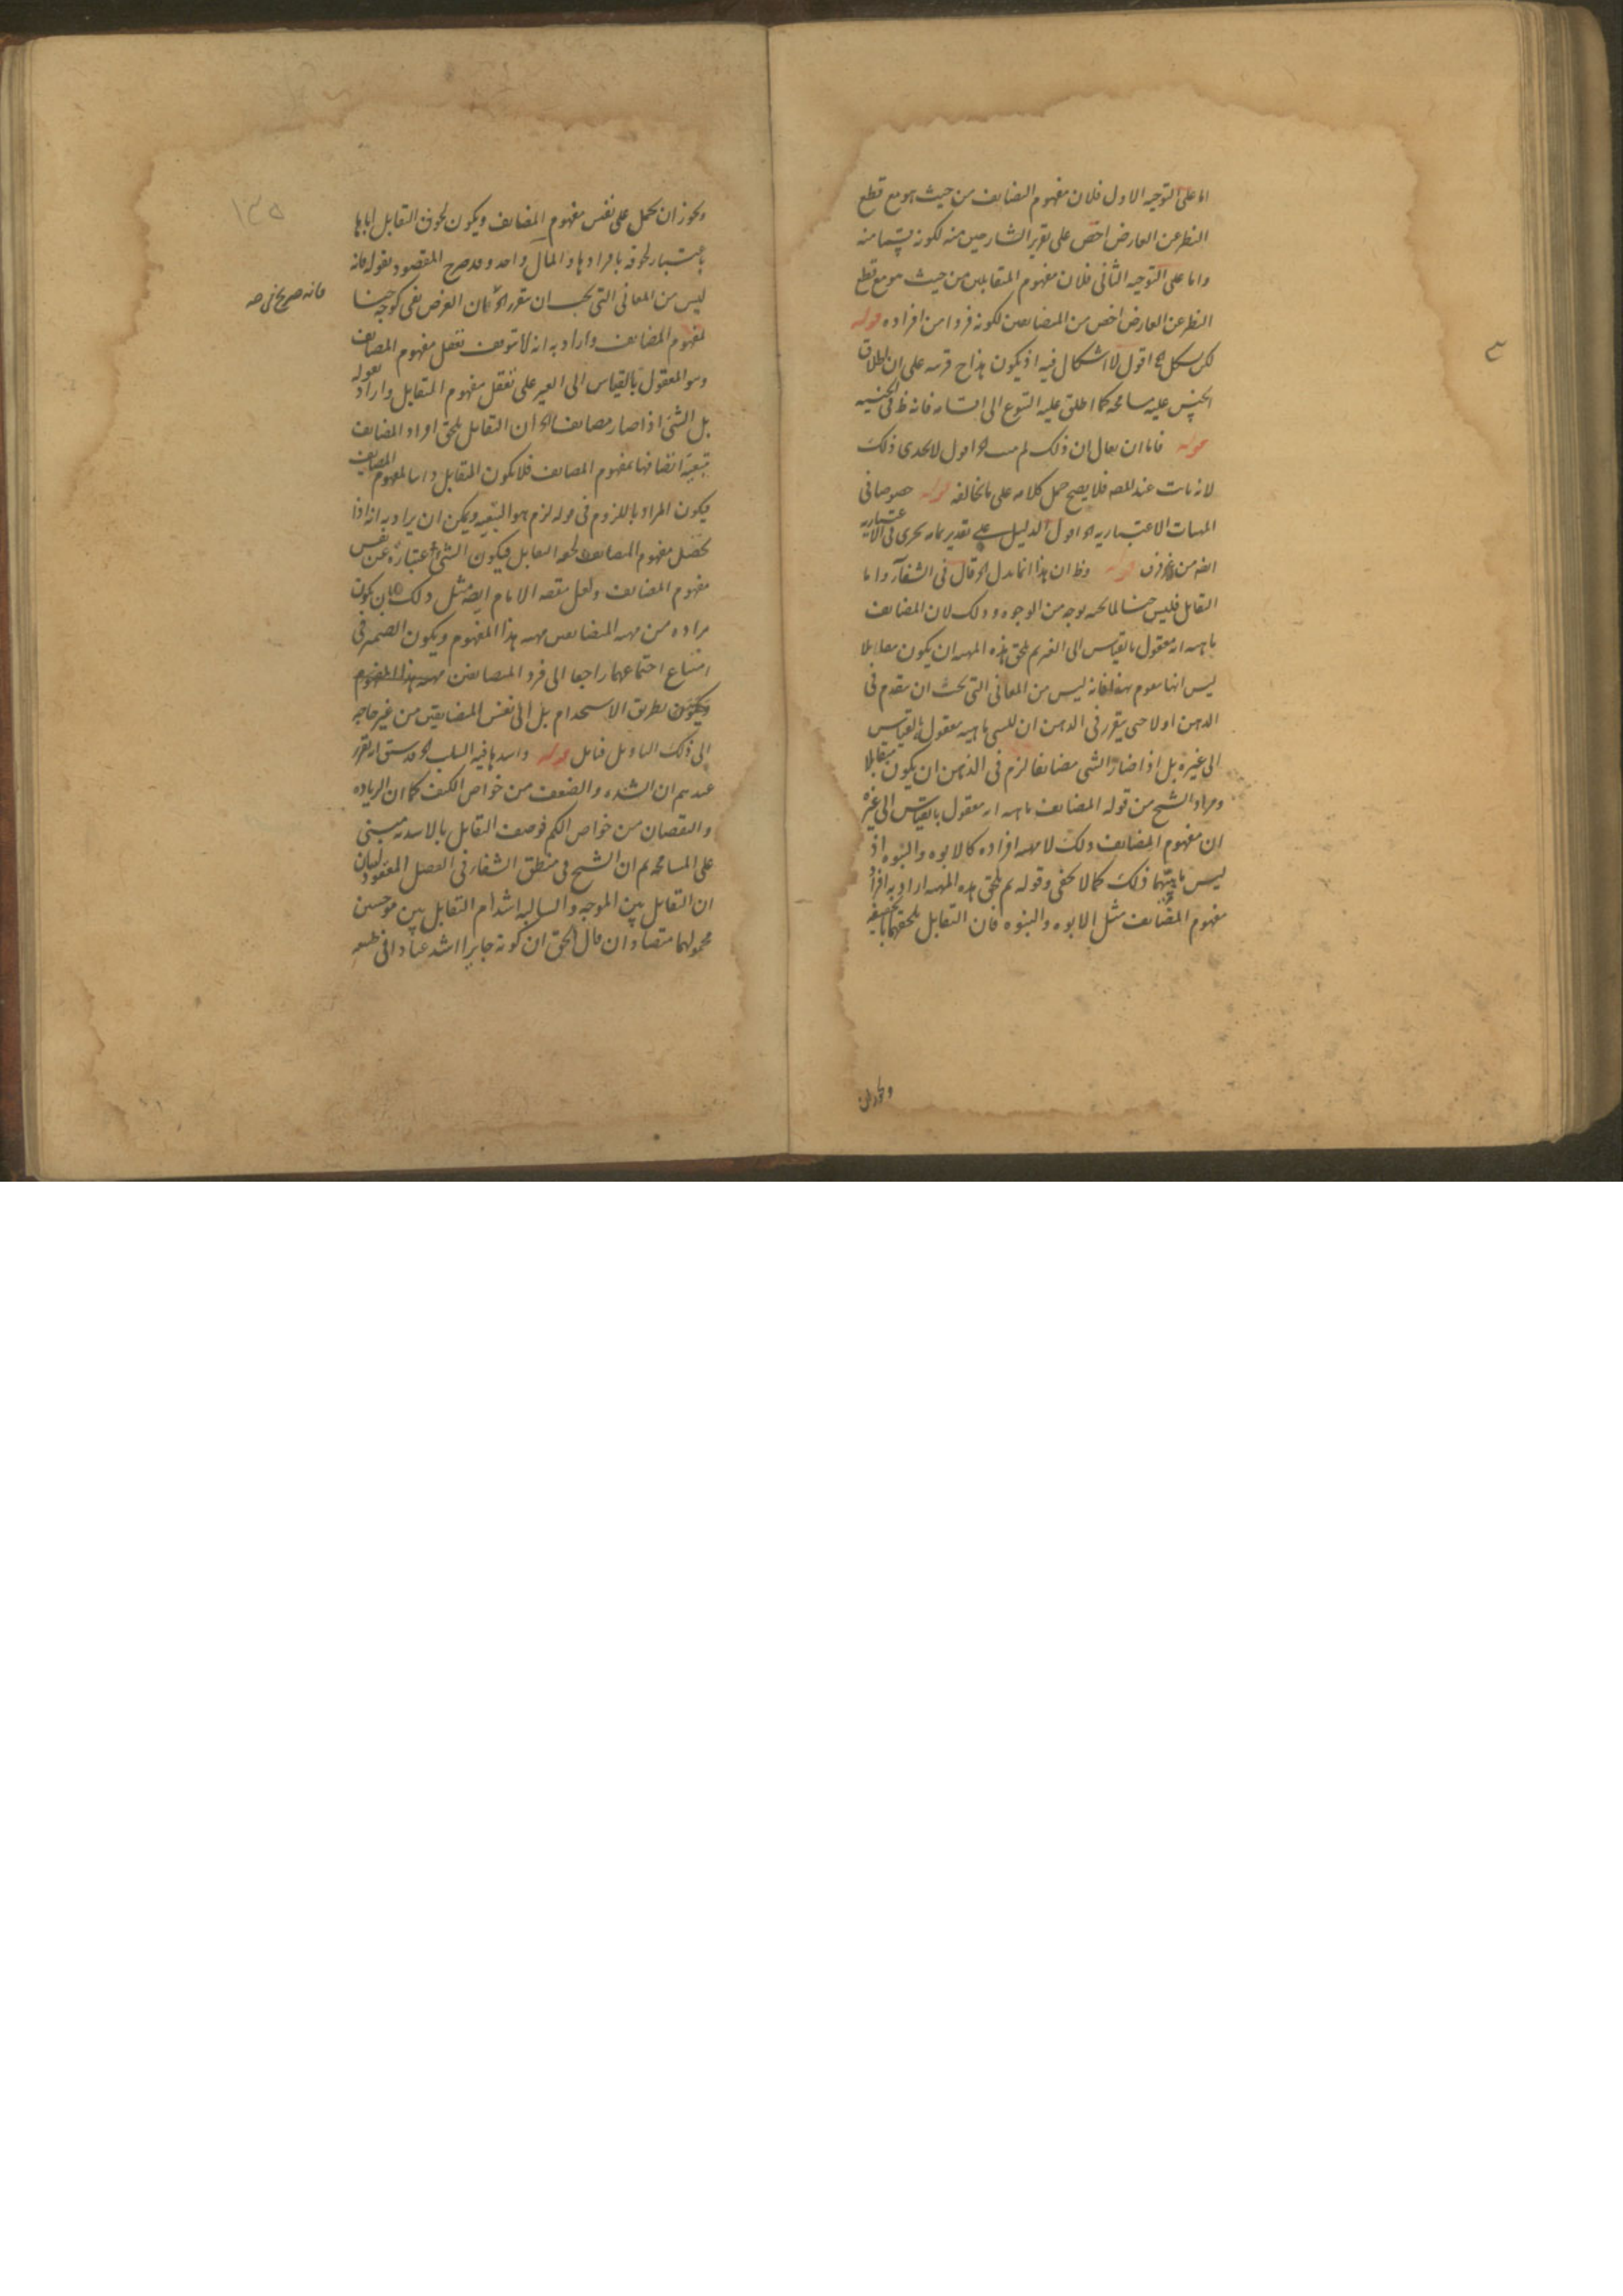 اما على التوجيه الاول فلان مفهوم المضايف من حيث هو مع قطع
النظر عن العارض اخص على تقرير الشارحين منه لكونه قسما منه
واما على التوجيه الثانى فلان مفهوم المتقابلين من حيث هو مع قطع
النظر عن العارض اخص من المضايفين لكونه فردا من افراده قوله
لكن يشكل الخ اقول لا اشكال فيه اذ يكون هذا ح قرينة على ان اطلاق
الجنس عليه مسامحة كما اطلق عليه النوع الى
قوله فاما ان يقال ان ذلك لم اقول لا يجدى ذلك
لانه ثابت عند المصه فلا يصح حمل كلامه على ما يخالفه قوله خصوصا فى
المهيات الاعتباريه الخ اقول الدليل على تقدير تمامه يجرى فى
ايضه من غير فرق قوله وظ ان هذا انما يدل الخ قال فى الشفآء واما
التقابل فليس جنسا لما تحته بوجه من الوجوه وذلك لان المضايف
ماهيته انه معقول بالقياس الى الغير ثم تلحق هذه المهيه ان يكون مقابلا
ليس انها فانه ليس من المعانى التى يجب ان يتقدم فى
الذهن اولا حتى يتقرر فى الذهن ان للشى ماهيه معقول بالقياس
الى غيره بل اذا صار الشى مضايفا لزم فى الذهن ان يكون مقابلا
ومراد الشيخ من قوله المضايف ماهيته انه معقول بالقياس الى غيره
ان مفهوم المضايف ذلك لا مهيه افراده كالابوه والبنوه اذ
ليس ماهيتهما ذلك كما لا يخفى وقوله ثم تلحق هذه المهيه اراد به افراد
مفهوم المضايف مثل الابوه والبنوه فان التقابل يلحقهما
ويجوز ان
ويجوز ان يحمل على نفس مفهوم المضايف ويكون لحوق التقابل اياها
باعتبار لحوقه بافرادها والمال واحد وقد صرح المقصود بقوله فانه
ليس من المعانى التى يجب ان يتقرر الخ فان الغرض نفى كونه جنسا
فانه صريح فى
لمفهوم المضايف واراد به انه لا يتوقف تعقل مفهوم المضايف
وهو المعقول بالقياس الى الغير على تعقل مفهوم المتقابل واراد بقوله
بل الشئ اذا صار مضايفا الخ ان التقابل يلحق افراد المضايف
بتبعية اتصافها بمفهوم المضايف فلا يكون المتقابل ذاتيا لمفهوم المضايف
فيكون المراد باللزوم فى قوله لزم هو التبعيه ويمكن ان يراد به انه اذا
تحصل مفهوم المضايف لحقه التقابل فيكون الشئ عبارة عن نفس
مفهوم المضايف ولعل مقصه الامام ايضه مثل ذلك بان يكون
مراده من مهيه المضايفين مهيه هذا المفهوم ويكون الضمير فى
امتناع اجتماعهما راجعا الى فرد المضايفين
بطريق الاستخدام بل الى نفس المضايفين من غير حاجه
الى ذلك التاويل فتامل قوله واشدها فيه السلب الخ قد سبق ان
عندهم ان الشده والضعف من خواص الكيف كما ان الزياده
والنقصان من خواص الكم فوصف التقابل بالاشديه مبنى
على المسامحه ثم ان الشيخ فى منطق الشفاء فى الفصل المعقود لبيان
ان التقابل بين الموجبه والسالبه اشد ام التقابل بين موجبتين
محمولهما متضادان قال الحق ان كونه جايرا اشد عنادا فى طبعه